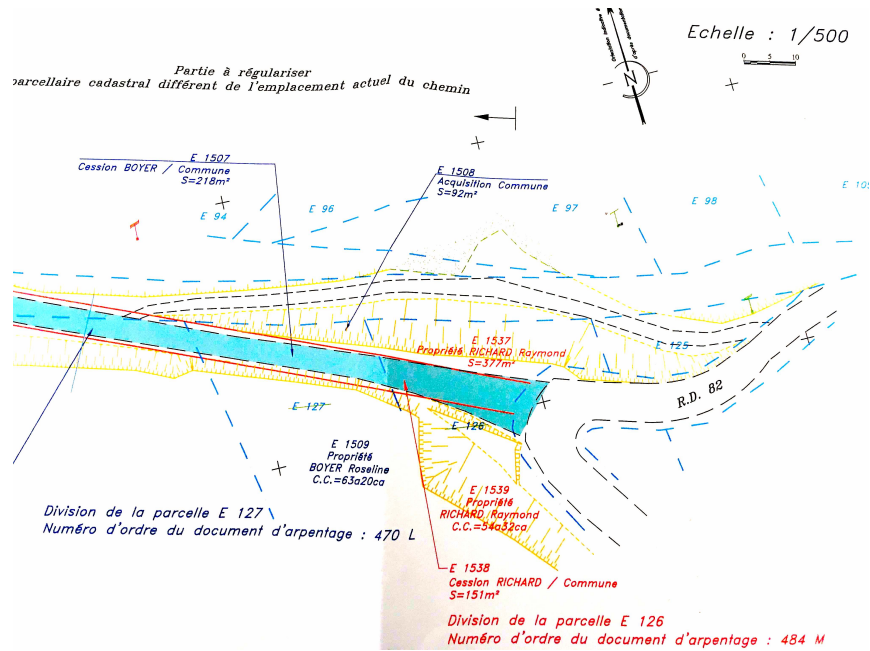 Echelle : 1/500
0 5 10
N
Partie à régulariser
parcellaire cadastral différent de l'emplacement actuel du chemin
E 1507
Cession BOYER / Commune
S=218m²
E 1508
Acquisition Commune
S=92m²
E 94
E 96
E 97
E 98
E 1537
Propriété RICHARD Raymond
S=377m²
E 125
R.D. 82
E 127
E 126
E 1509
Propriété
BOYER Roseline
C.C.=63a20ca
E 1539
Propriété
RICHARD Raymond
C.C.=54a32ca
Division de la parcelle E 127
Numéro d'ordre du document d'arpentage : 470 L
E 1538
Cession RICHARD / Commune
S=151m²
Division de la parcelle E 126
Numéro d'ordre du document d'arpentage : 484 M